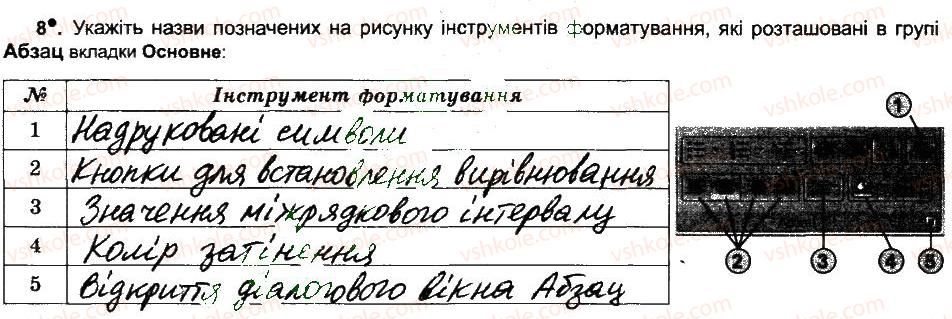 8●. Укажіть назви позначених на рисунку інструментів форматування, які розташовані в групі
Абзац вкладки Основне:
№ Інструмент форматування
1 Надруковані символи
2 Кнопки для встановлення вирівнювання
3 Значення міжрядкового інтервалу
4 Колір затінення
5 Відкриття діалогового вікна Абзац
1
2 3 4 5
vshkole.com